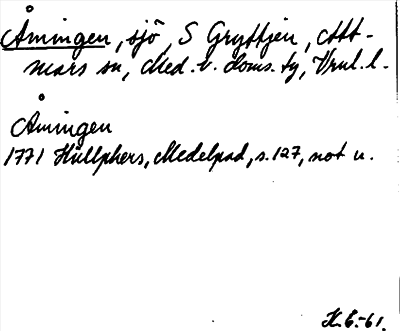 Åmingen, sjö, S Gryttjen, Att-
mars sn, Med. v. doms. tg, Vnrl. l.
Åmingen
1771 Hüllphers, Medelpad, s. 127, not u.
H.G.-61.